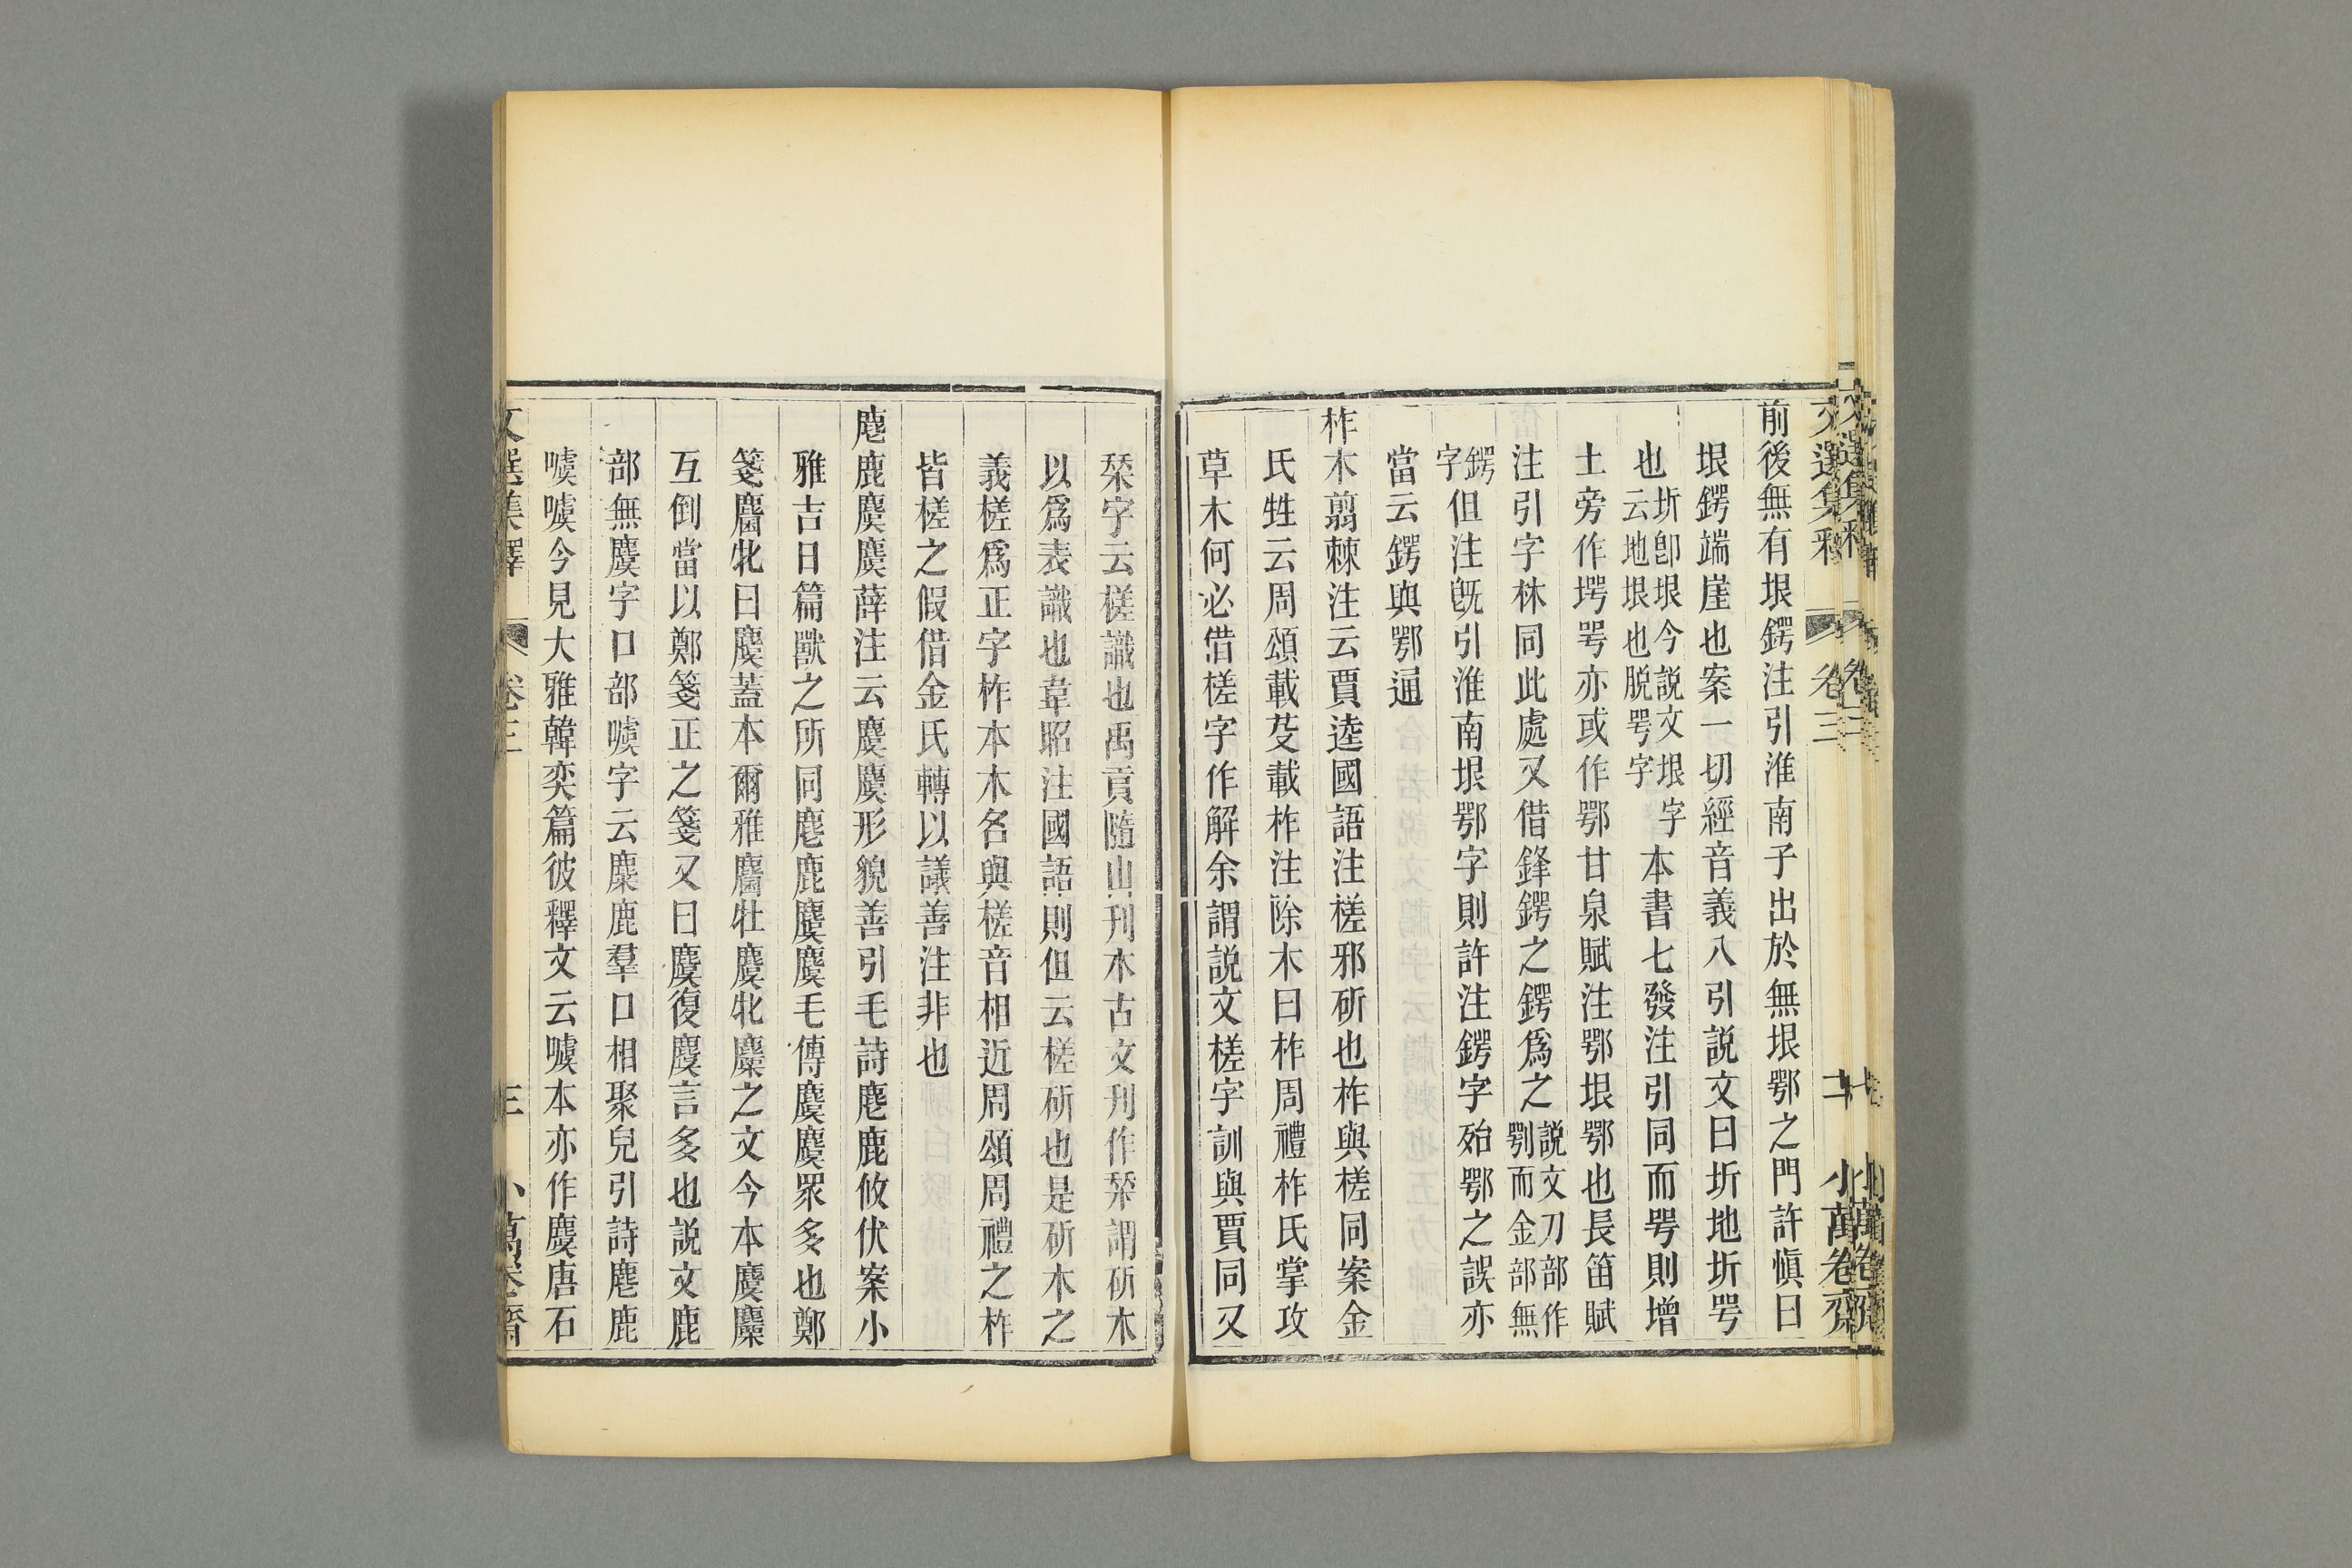 前後無有垠鍔注引淮南子出於無垠鄂之門許愼曰
垠鍔端崖也案一切經音義八引説文曰圻地圻咢
也圻卽垠今説文垠字云地垠也脱咢字本書七發注引同而咢則增
土旁作堮咢亦或作鄂甘泉賦注鄂垠鄂也長笛賦
注引字林同此處又借鋒鍔之鍔爲之説文刀部作㓵而金部無
鍔字但注旣引淮南垠鄂字則許注鍔字殆鄂之誤亦
當云鍔與鄂通
柞木翦棘注云賈逵國語注槎邪斫也柞與槎同案金
氏甡云周頌載芟載柞注除木曰柞周禮柞氏掌攻
草木何必借槎字作解余謂説文槎字訓與賈同又
栞字云槎識也禹貢隨山刊木古文刊作栞謂斫木
以爲表識也韋昭注國語則但云槎斫也是斫木之
義槎爲正字柞本木名與槎音相近周頌周禮之柞
皆槎之假借金氏轉以議善注非也
麀鹿麌麌薛注云麌麌形貌善引毛詩麀鹿攸伏案小
雅吉日篇獸之所同麀鹿麌麌毛傳麌麌眾多也鄭
箋麕牝曰麌蓋本爾雅麕牡麌牝麜之文今本麌麜
互倒當以鄭箋正之箋又曰麌復麌言多也説文鹿
部無麌字口部噳字云麋鹿羣口相聚皃引詩麀鹿
噳噳今見大雅韓奕篇彼釋文云噳本亦作麌唐石
文選集釋 卷三 三 小萬卷齋